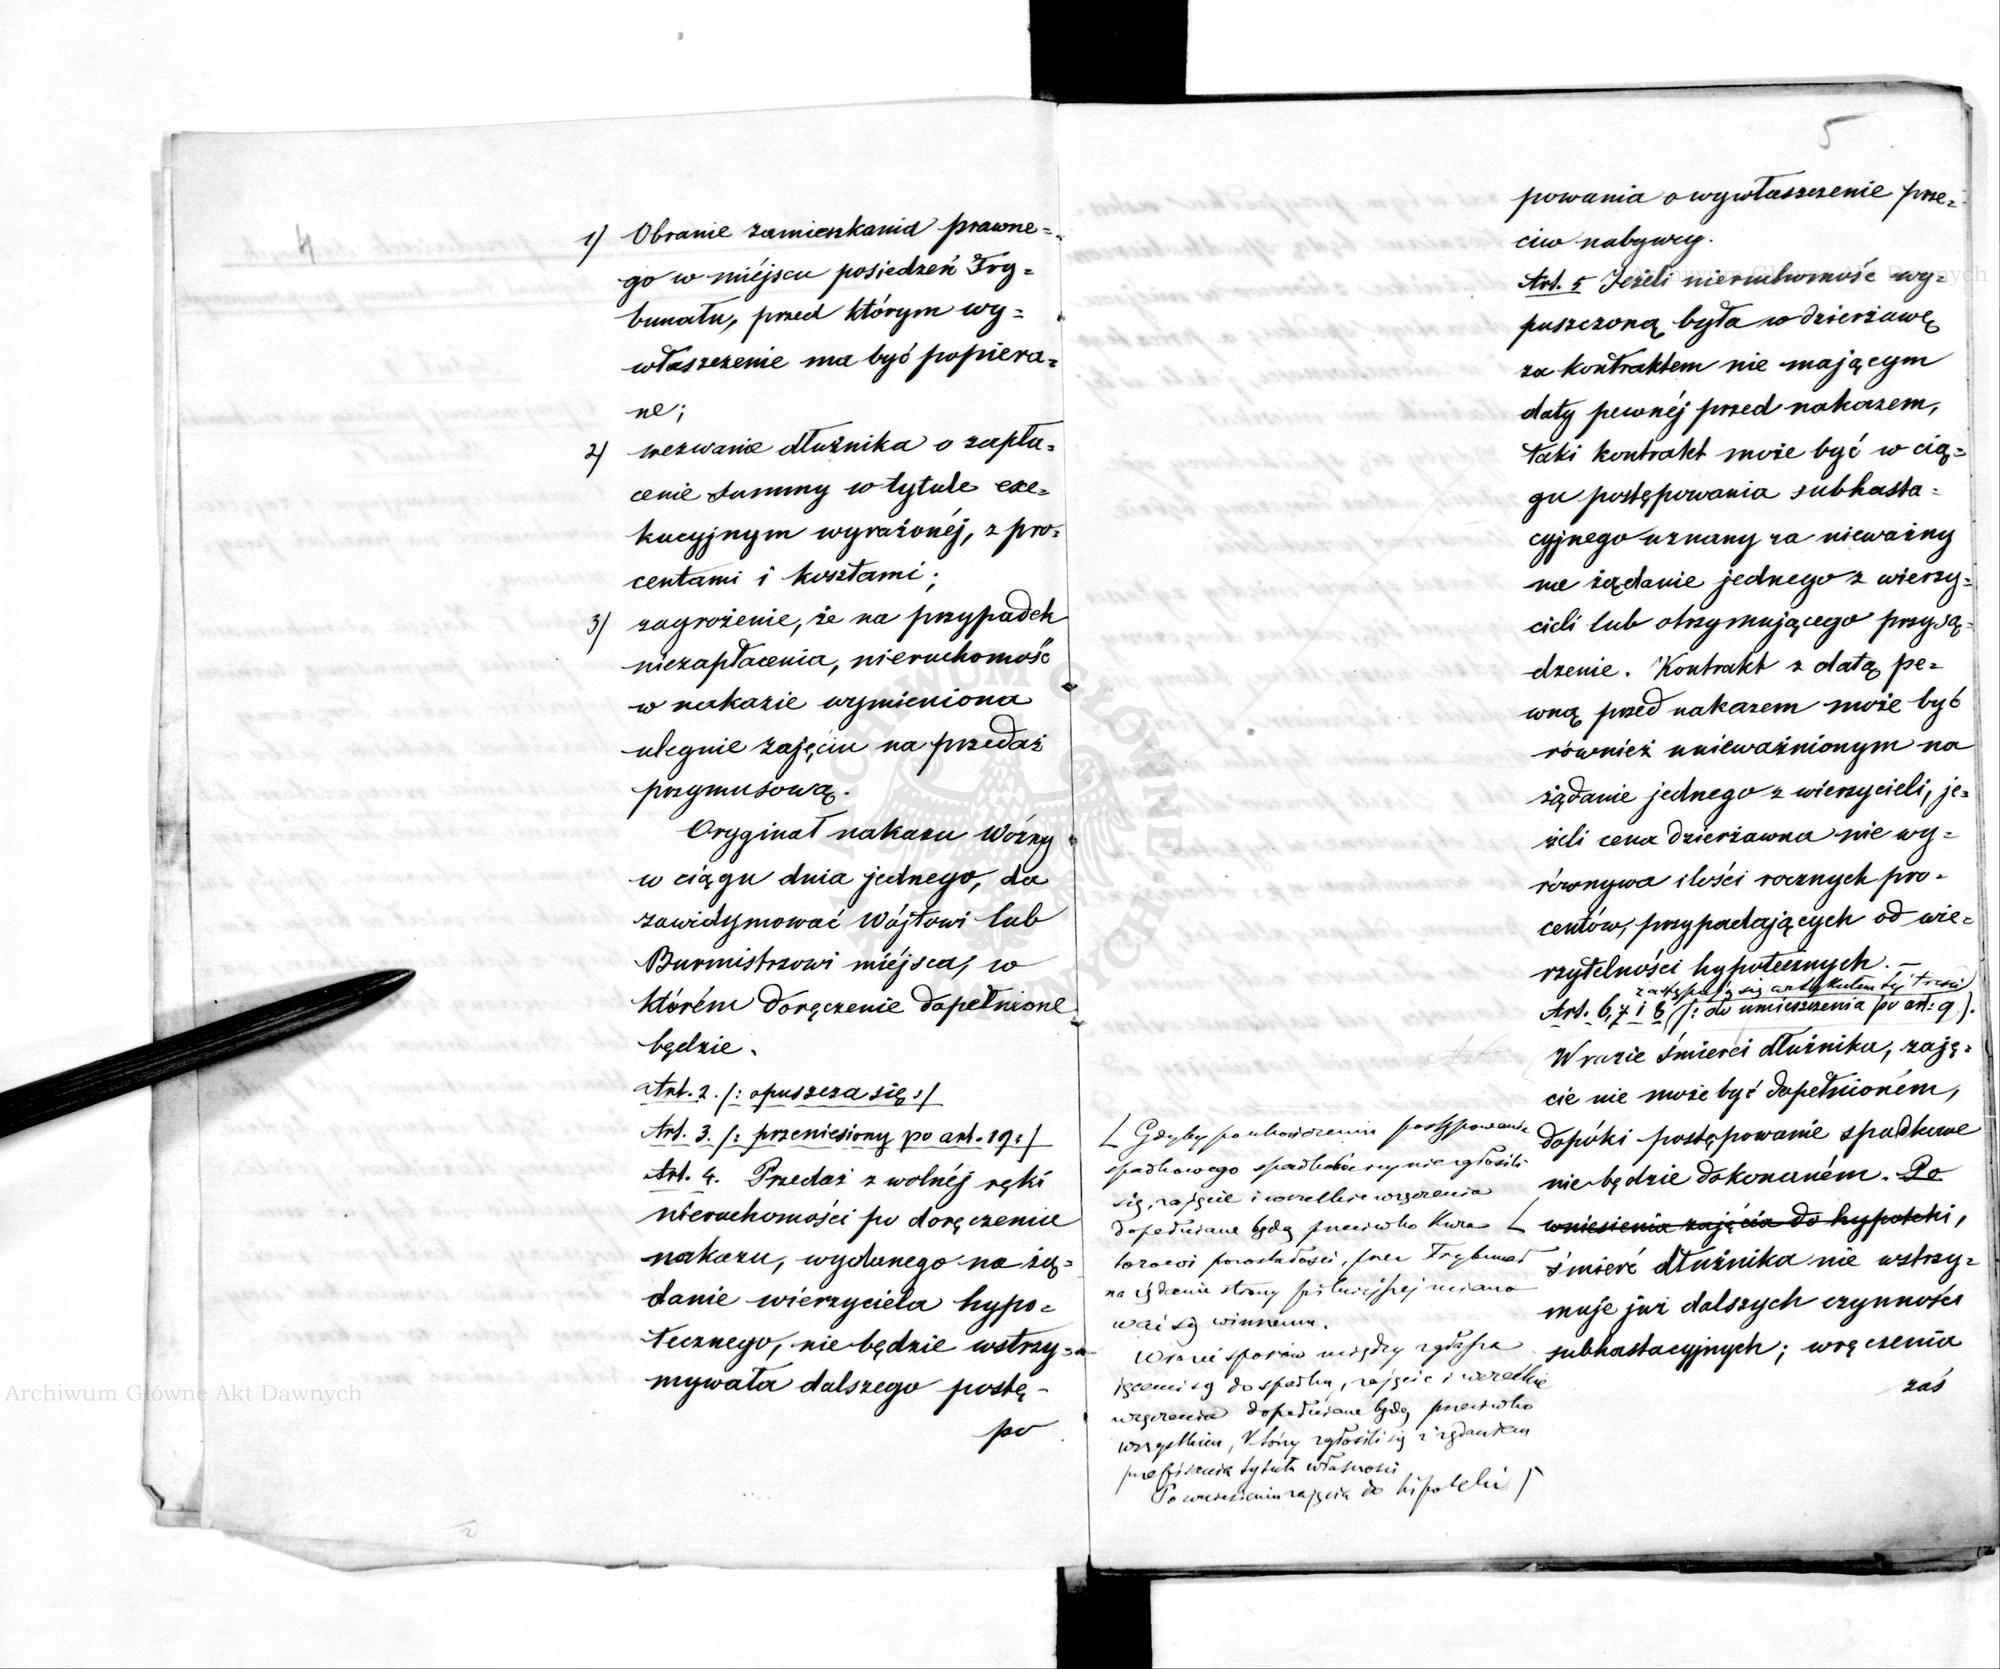 4
1) Obranie zamieszkania prawne=
go w miéjscu posiedzeń Try=
bunału, przed którym wy=
właszczenie ma być popiera=
ne;
2) wezwanie dłużnika o zapła=
cenie summy w tytule exe=
kucyjnym wyrażonéj, z pro=
centami i kosztami;
3) zagrożenie, że na przypadek
niezapłacenia, nieruchomość
w nakazie wymieniona
ulegnie zajęciu na przedaż
przymusową.
Oryginał nakazu Woźny
w ciągu dnia jednego, da
zawidymować Wójtowi lub
Burmistrzowi miéjsca, w
którém doręczenie dopełnione
będzie.
Art. 2. /: opuszcza się :/
Art. 3. /: przeniesiony po art. 19 :/
Art. 4. Przedaż z wolnéj ręki
nieruchomości po doręczeniu
nakazu, wydanego na żą=
danie wierzyciela hypo=
tecznego, nie będzie wstrzy=
mywała dalszego postę-
po
5
powania o wywłaszczenie prze=
ciw nabywcy.
Art. 5 Jeżeli nieruchomość wy=
puszczoną była w dzierżawę
za kontraktem nie mającym
daty pewnéj przed nakazem,
taki kontrakt może być w cią=
gu postępowania subhasta=
cyjnego uznany za nieważny
na żądanie jednego z wierzy=
cieli lub otrzymującego przysą=
dzenie. Kontrakt z datą pe=
wną przed nakazem może być
również unieważnionym na
żądanie jednego z wierzycieli, je=
żeli cena dzierżawna nie wy=
równywa ilości rocznych pro=
centów, przypadających od wie=
rzytelności hypotecznych. —
zastępują się artykułem téj treści
Art. 6, 7 i 8 /: do umieszczenia po art: 9 ).
W razie śmierci dłużnika, zaję=
cie nie może być dopełnioném,
dopóki postępowanie spadkowe
nie będzie dokonaném. Po
wniesieniu zajęcia do hypoteki,
śmierć dłużnika nie wstrzy=
muje już dalszych czynności
subhastacyjnych; wręczenia
zaś
Gdyby po ukończeniu postępowania
spadkowego spadkobiercy nie zgłosili
się, zajęcie i wszelkie wręczenia
dopełniane będą przeciwko Kura
torowi pozostałości, przez Trybunał
na żądanie strony pilniejszej miano
wać się winnemu.
W razie sporów między zgłasza
jącemi się do spadku, zajęcie i wszelkie
wręczenia dopełniane będą przeciwko
wszystkim, którzy zgłosili się z żądaniem
przepisania tytułu własności
Po wniesieniu zajęcia do hipoteki
Archiwum Główne Akt Dawnych
Archiwum Główne Akt Dawnych
ARCHIWUM GŁÓWNE AKT DAWNYCH